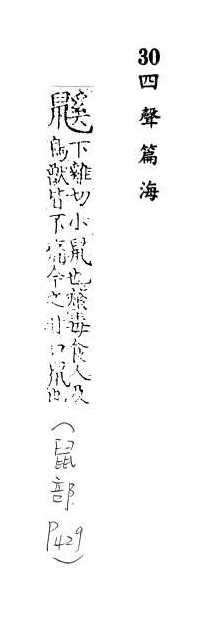 30四聲篇海
鼷
下雞切小鼠也螫毒食人及
鳥獸皆不痛今之甘口鼠也
(鼠部 P429)